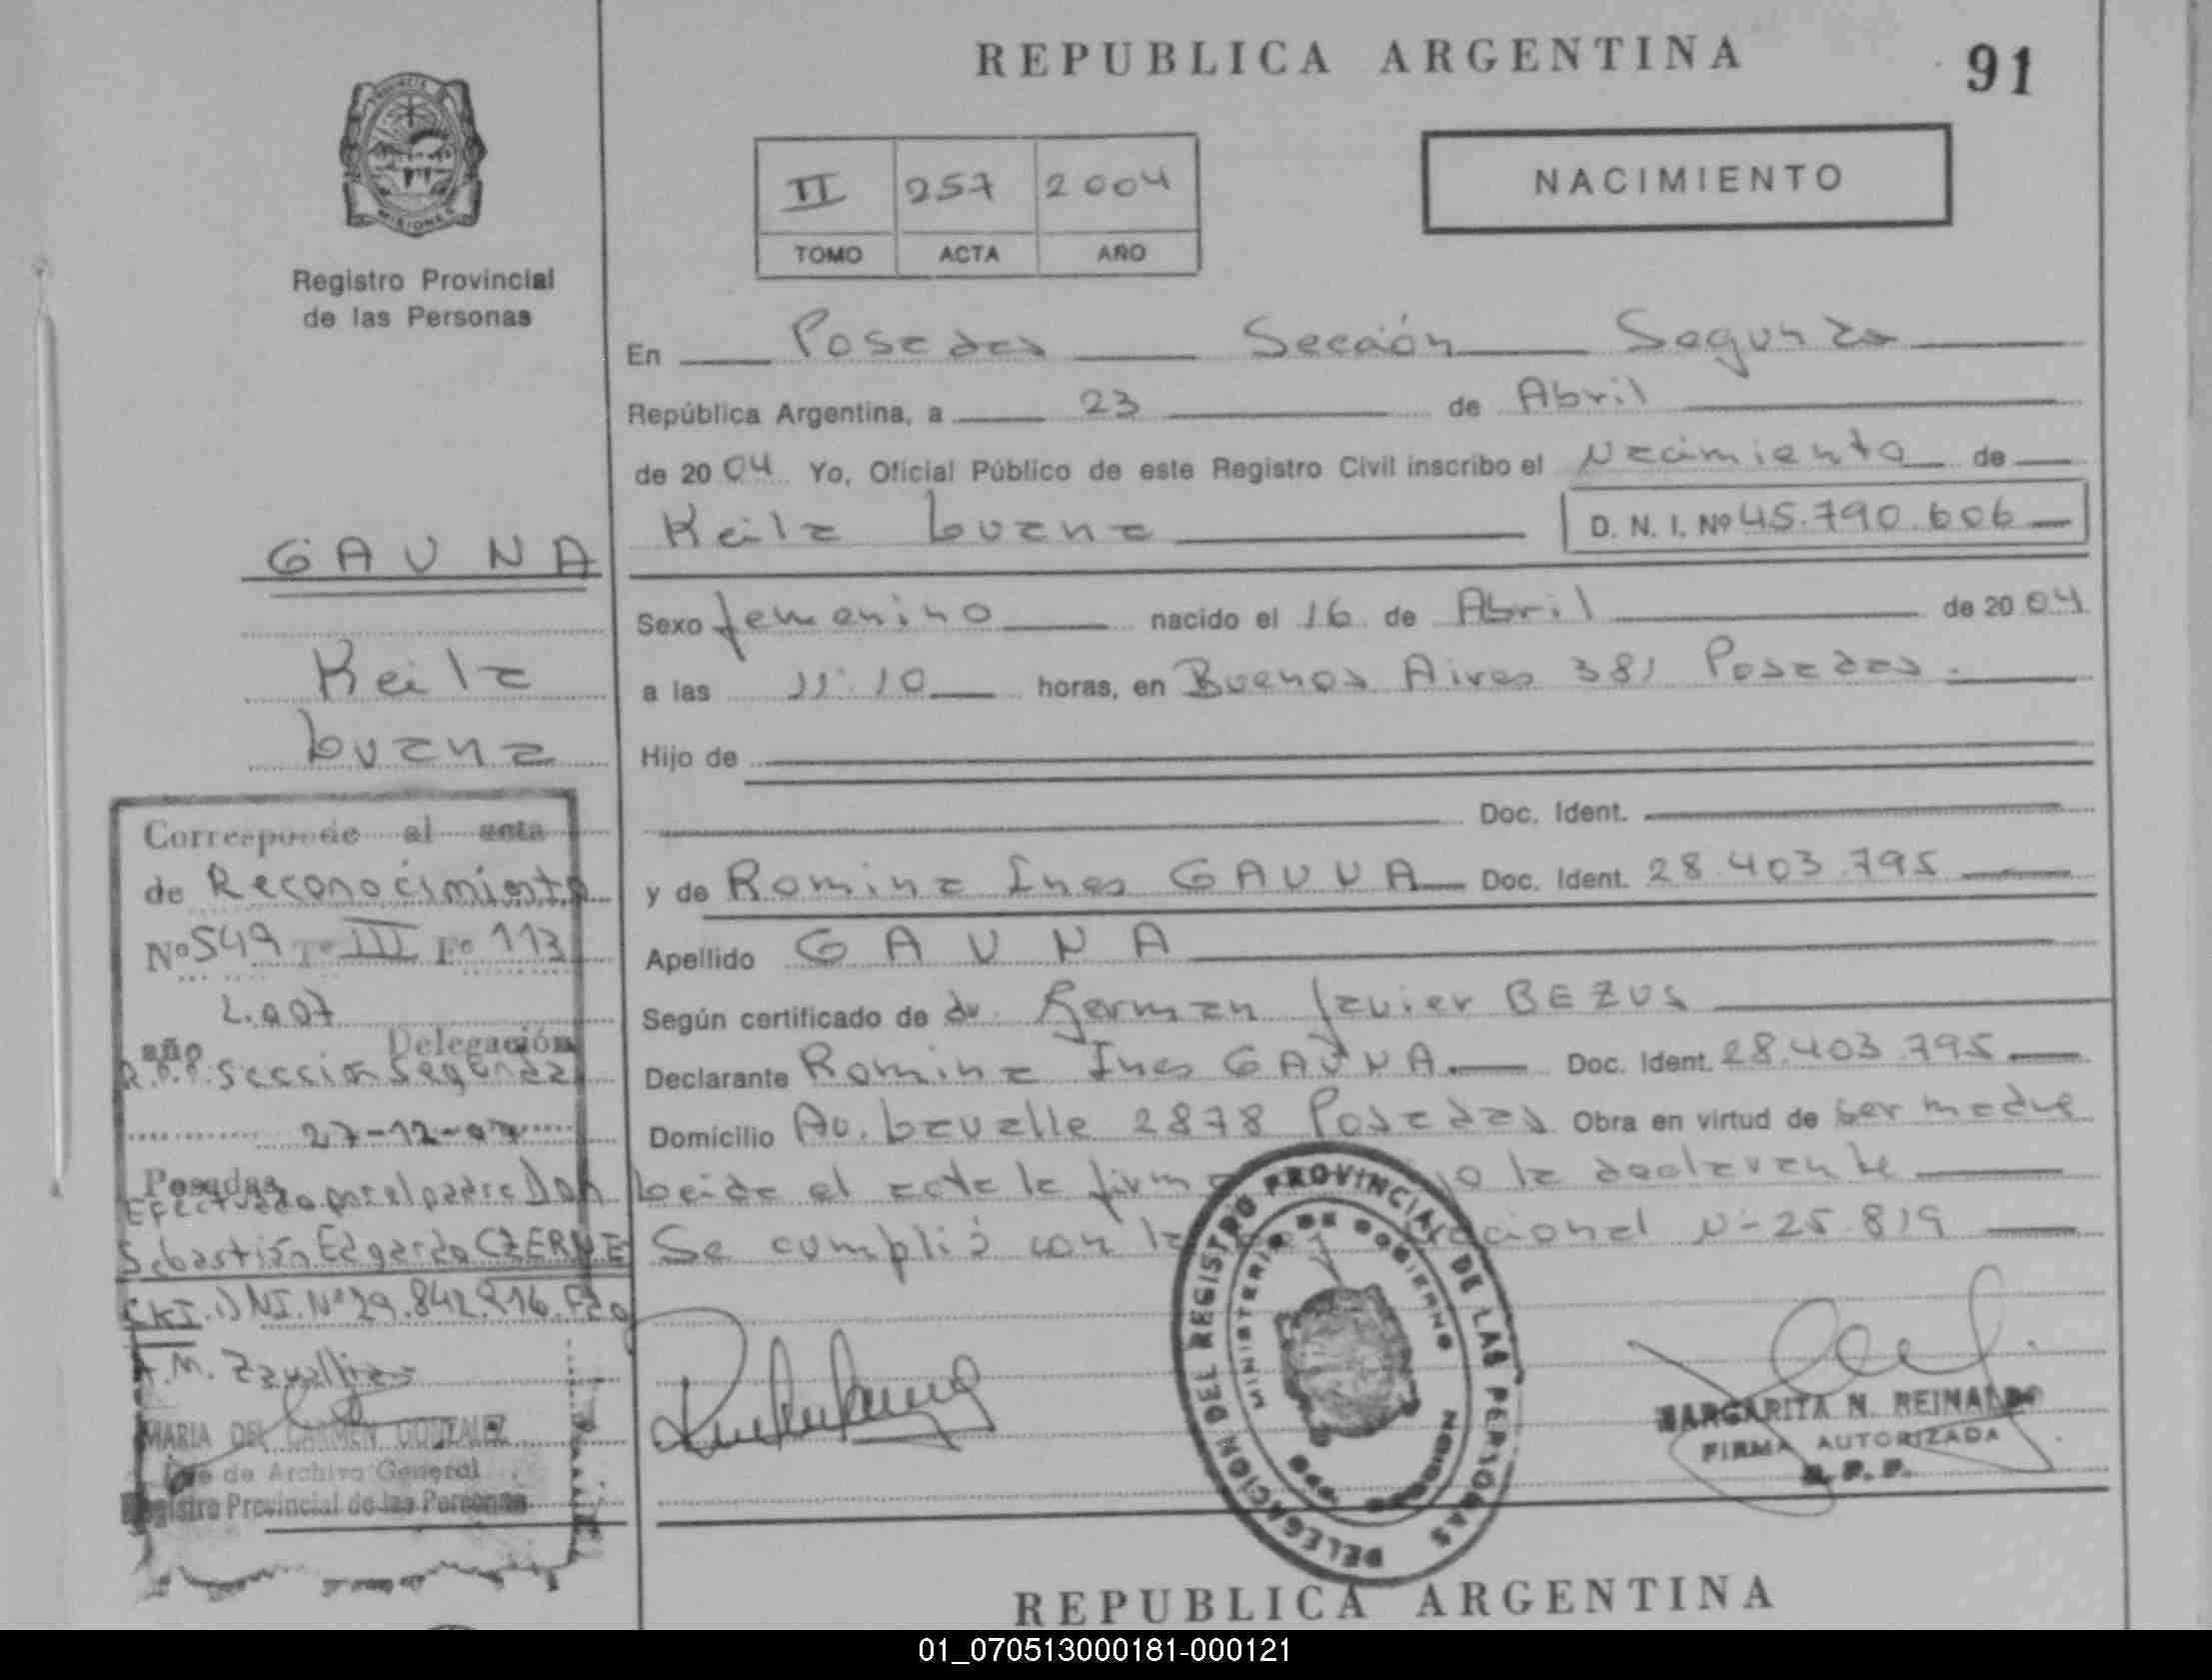 REPUBLICA ARGENTINA
91
PROVINCIA
MISIONES
Registro Provincial
de las Personas
II 257 2004
TOMO ACTA AÑO
NACIMIENTO
En Posadas Sección Segunda
República Argentina, a 23 de Abril
de 2004 Yo, Oficial Público de este Registro Civil inscribo el Nacimiento de
Keila Luana D. N. I. Nº 45.790.606
GAUNA
Keila
Luana
Sexo femenino nacido el 16 de Abril de 2004
a las 11:10 horas, en Buenos Aires 381 Posadas.
Hijo de
Doc. Ident.
y de Romina Ines GAUNA Doc. Ident. 28.403.795
Apellido GAUNA
Según certificado de dr. German Javier BEZUS
Declarante Romina Ines GAUNA. Doc. Ident. 28.403.795
Domicilio Av. Lavalle 2878 Posadas Obra en virtud de ser madre
Leida el acta la firma la declarante
Se cumplió con la nacional N-25.819
Corresponde al acta
de Reconocimiento
Nº 549 Tº III Fº 113
2.007
año Delegación
R.P.P. Sección Segunda
27-12-07
Posadas
Efectuado por el padre Don
Sebastián Edgardo CZERNE
CKI. DNI. Nº 29.842.216. Fdo
A.M. Zevallos
MARIA DEL CARMEN GONZALEZ
Jefe de Archivo General
Registro Provincial de las Personas
DELEGACION DEL REGISTRO PROVINCIAL DE LAS PERSONAS
MINISTERIO DE GOBIERNO
MARGARITA N. REINALDO
FIRMA AUTORIZADA
R. P. P.
REPUBLICA ARGENTINA
01_070513000181-000121